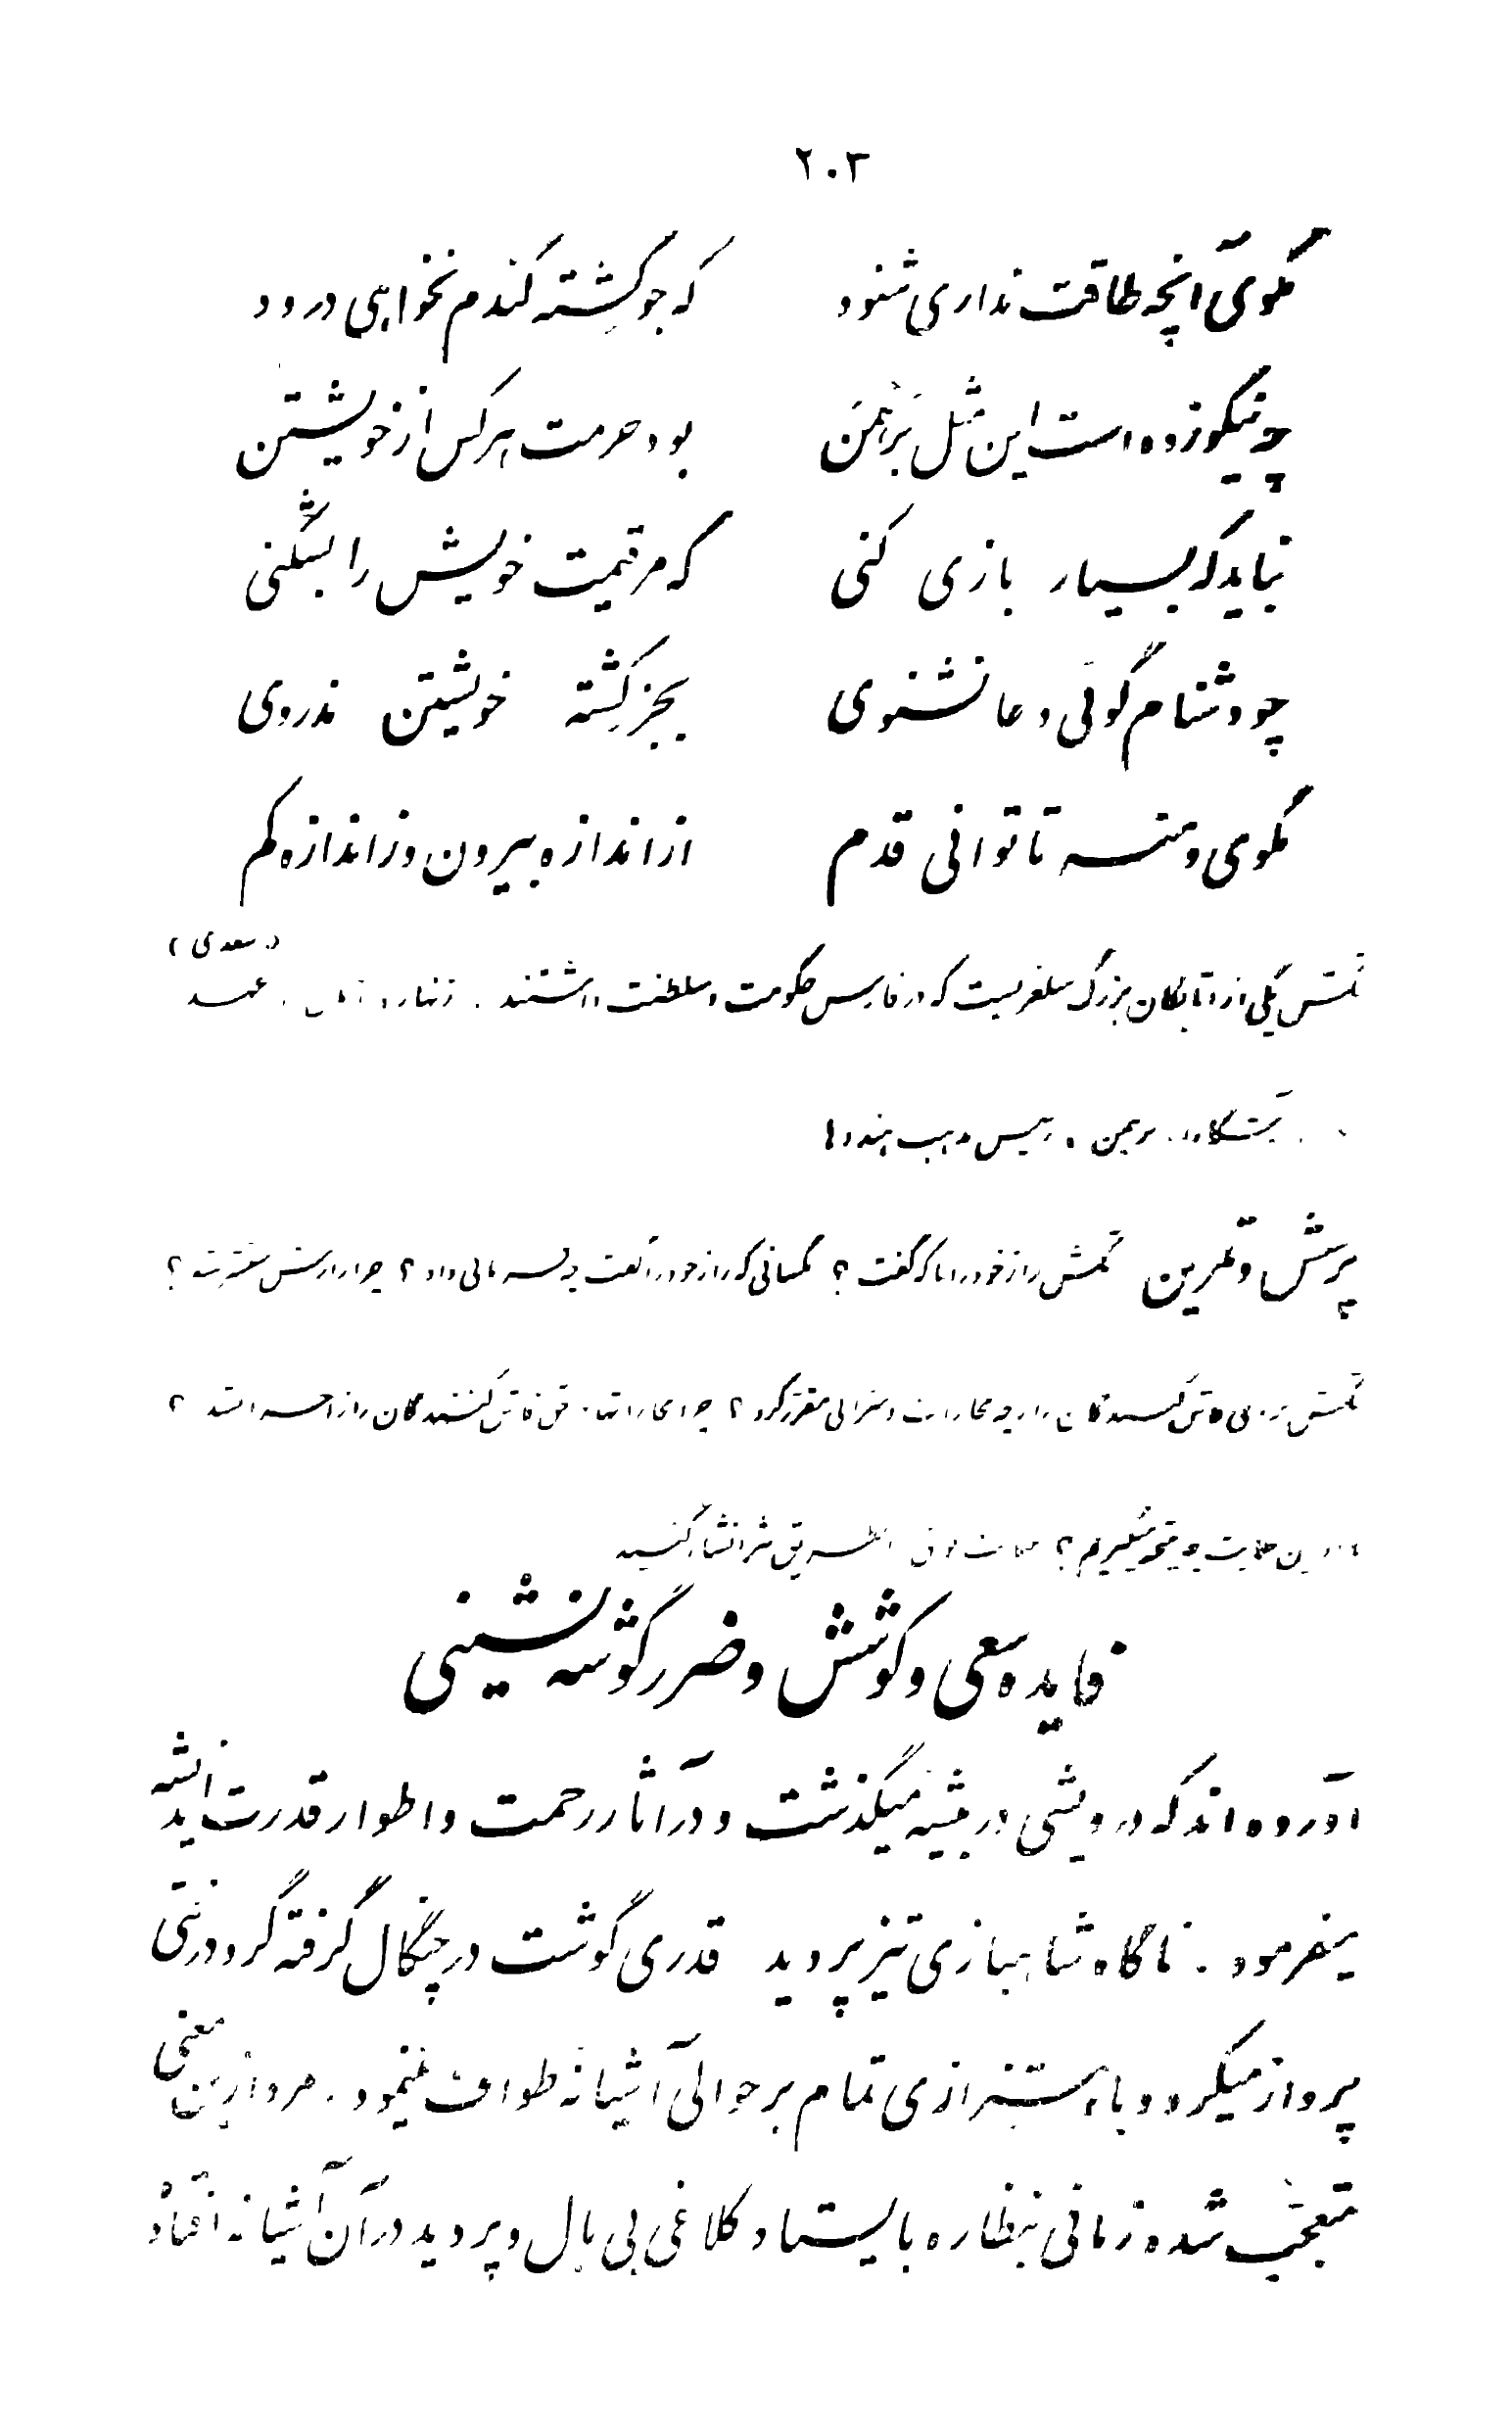 ۲۰۳
مگوی آنچه طاقت نداری شنود که جو کِشته گندم نخواهی درود
چه نیکو زده است این مثل بَرهْمَن بود حرمت هرکس از خویشتن
نباید که بسیار بازی کنی که مر قیمت خویش را بشکنی
چو دشنام گوئی دعا نشنوی بجز کِشته خویشتن ندروی
مگوی و منه تا توانی قدم از اندازه بیرون وز اندازه کم
(سعدی)
تکش یکی از اتابکان بزرگ سلغریست که در فارس حکومت و سلطنت داشتند . زنهار ، امان ، عهد
برهمن ، رئیس مذهب هندوها
پرسش و تمرین تکش راز خود را با که گفت ؟ کسانی که راز خود را گفت چه
تکش برای فاش کنندگان راز چه مجازات و سزائی مقرر کرد ؟ چرا فاش کنندگان راز
از این حکایت چه نتیجه میگیریم ؟ حکایت فوق بطریق نثر انشاء کنید
فایده سعی و کوشش و ضرر گوشه‌نشینی
آورده‌اند که درویشی در بیشه میگذشت و در آثار رحمت و اطوار قدرت اندیشه
میفرمود . ناگاه شاهبازی تیزپر دید قدری گوشت در چنگال گرفته گرد درختی
پرواز میکرد و باهتزازی تمام بر حوالی آشیانه طواف مینمود . مرد از این معنی
متعجب شده زمانی بنظاره بایستاد کلاغی بی بال و پر دید در آن آشیانه افتاده